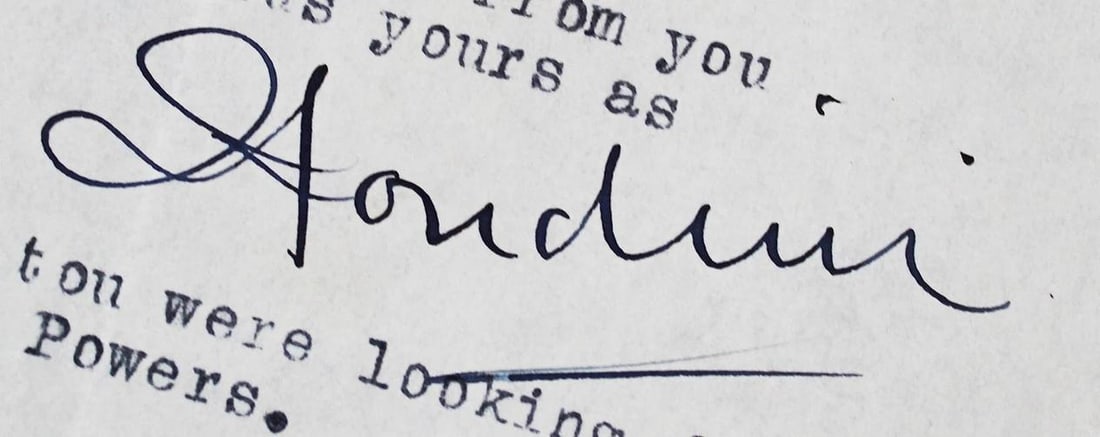 from you.
yours as
Houdini
tou were looking
Powers.